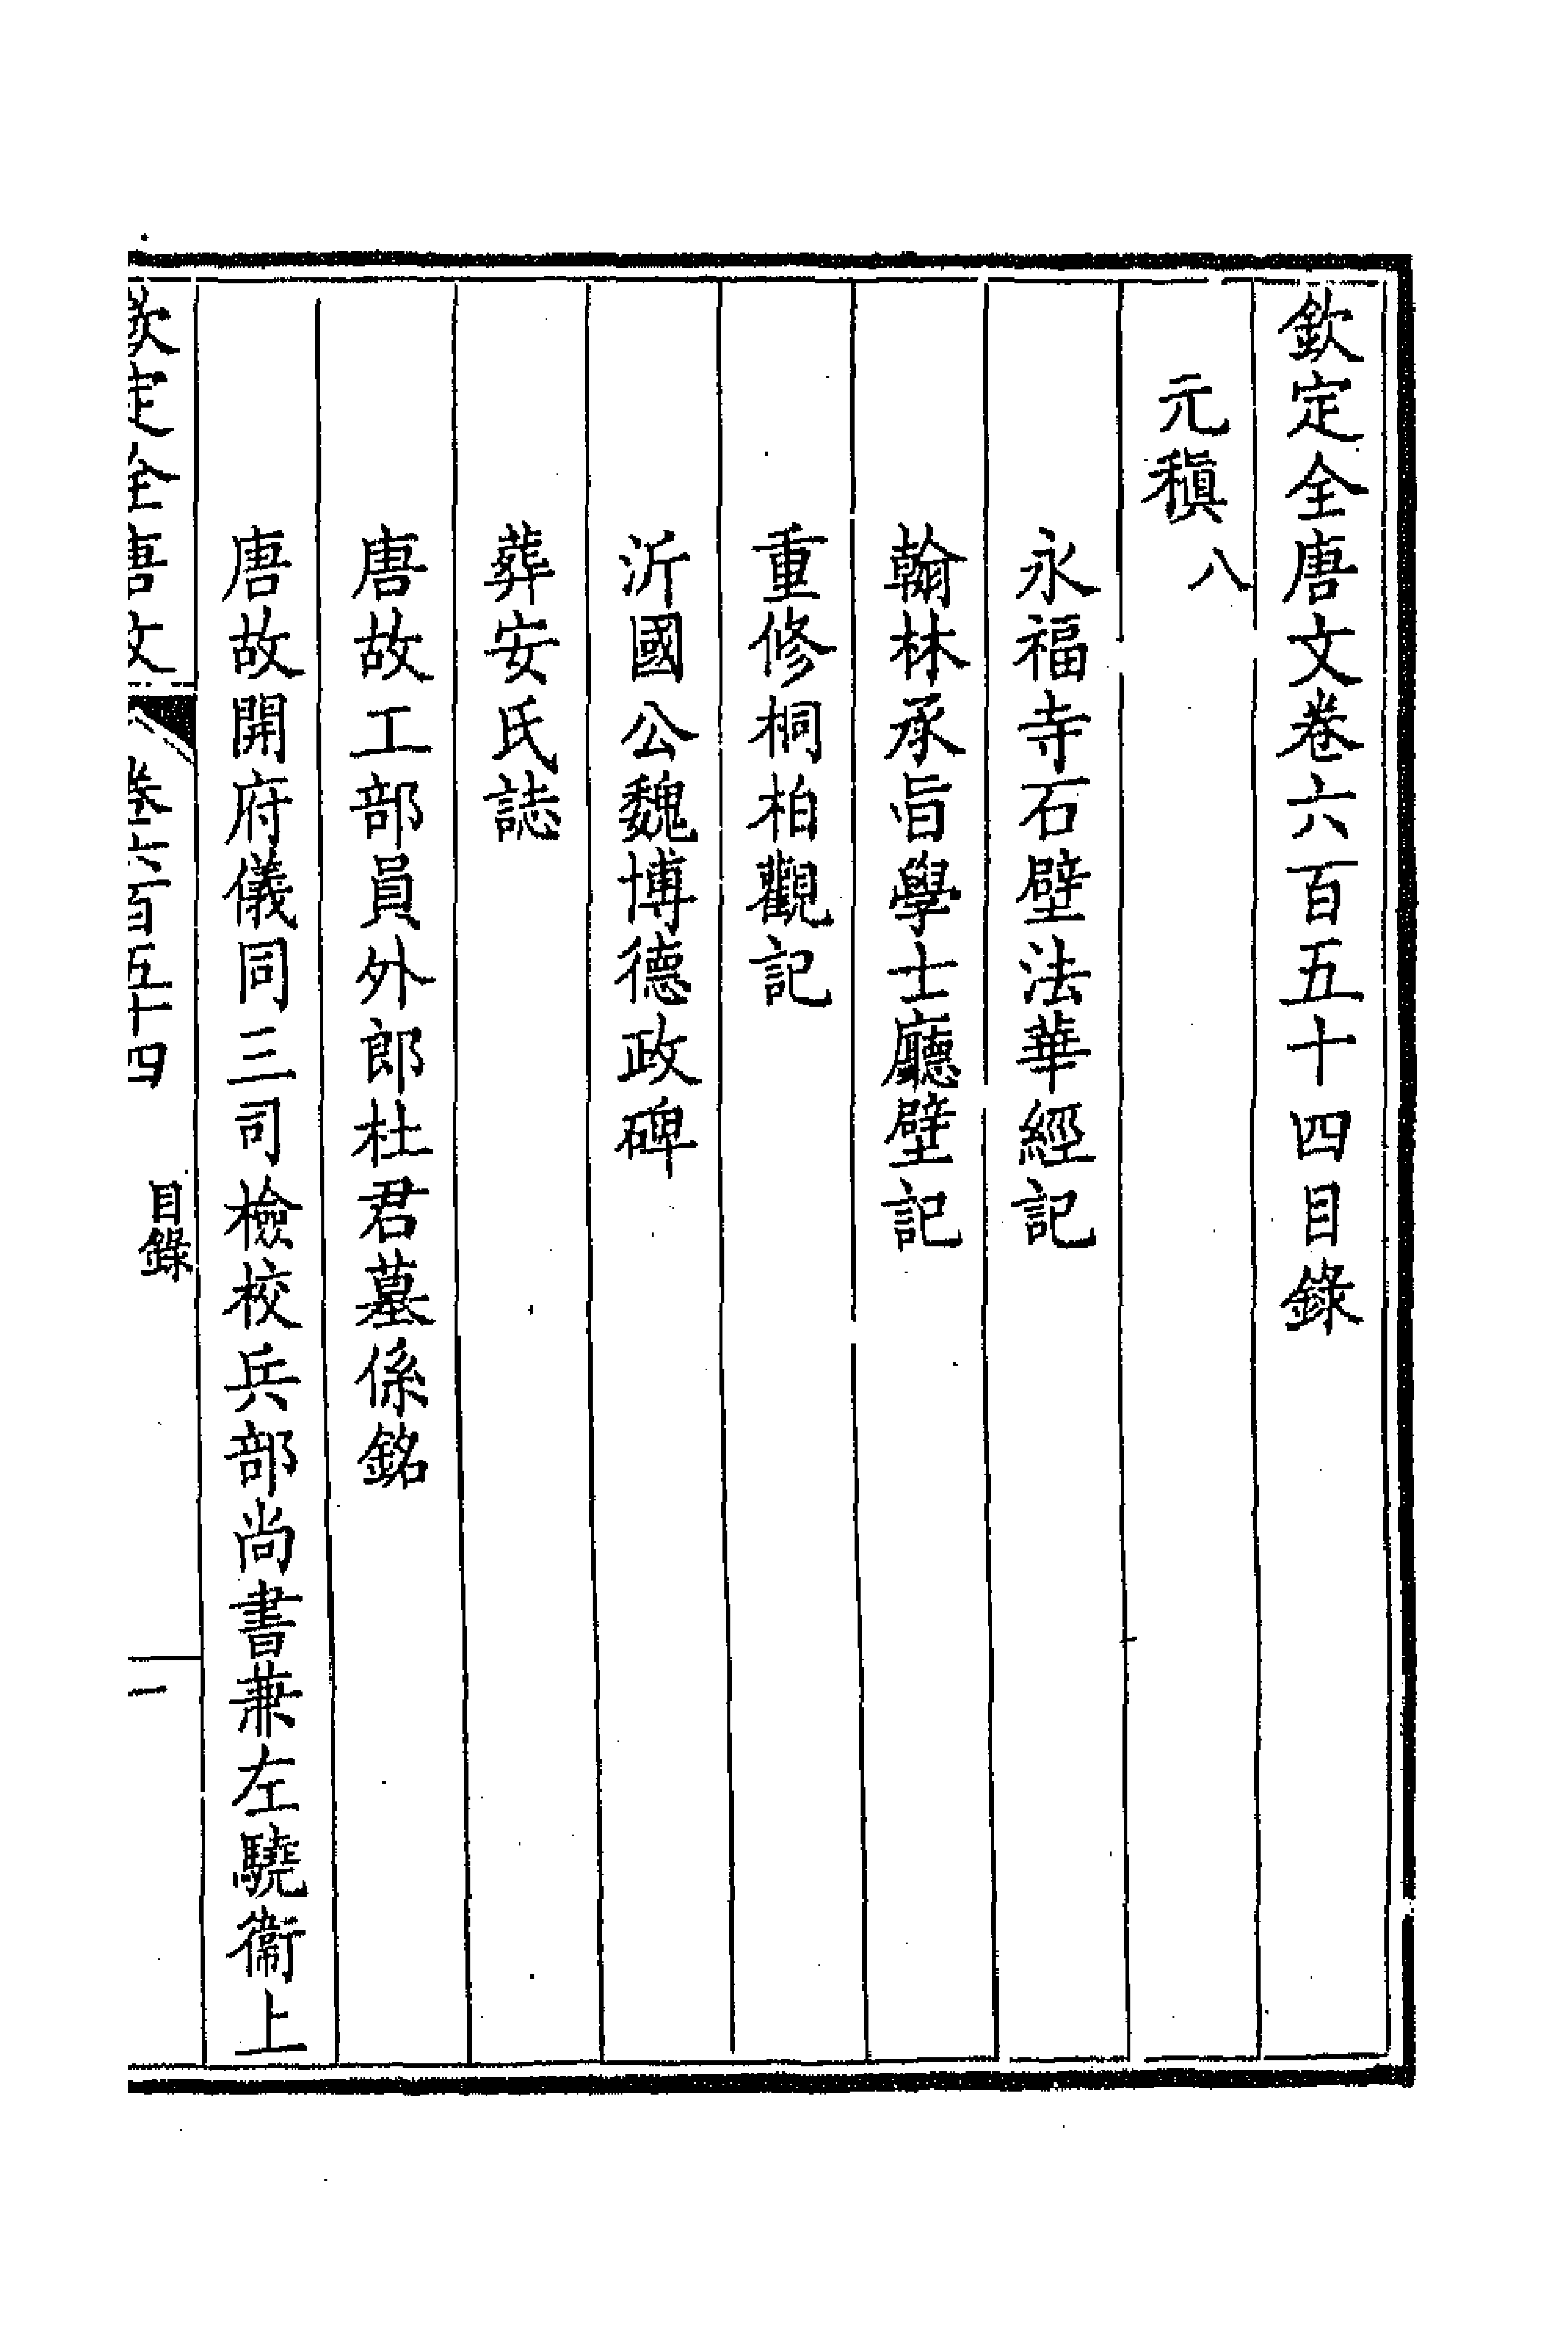 欽定全唐文卷六百五十四目錄
元稹八
永福寺石壁法華經記
翰林承旨學士廳壁記
重修桐柏觀記
沂國公魏博德政碑
葬安氏誌
唐故工部員外郎杜君墓係銘
唐故開府儀同三司檢校兵部尚書兼左驍衞上
欽定全唐文 卷六百五十四 目錄 一